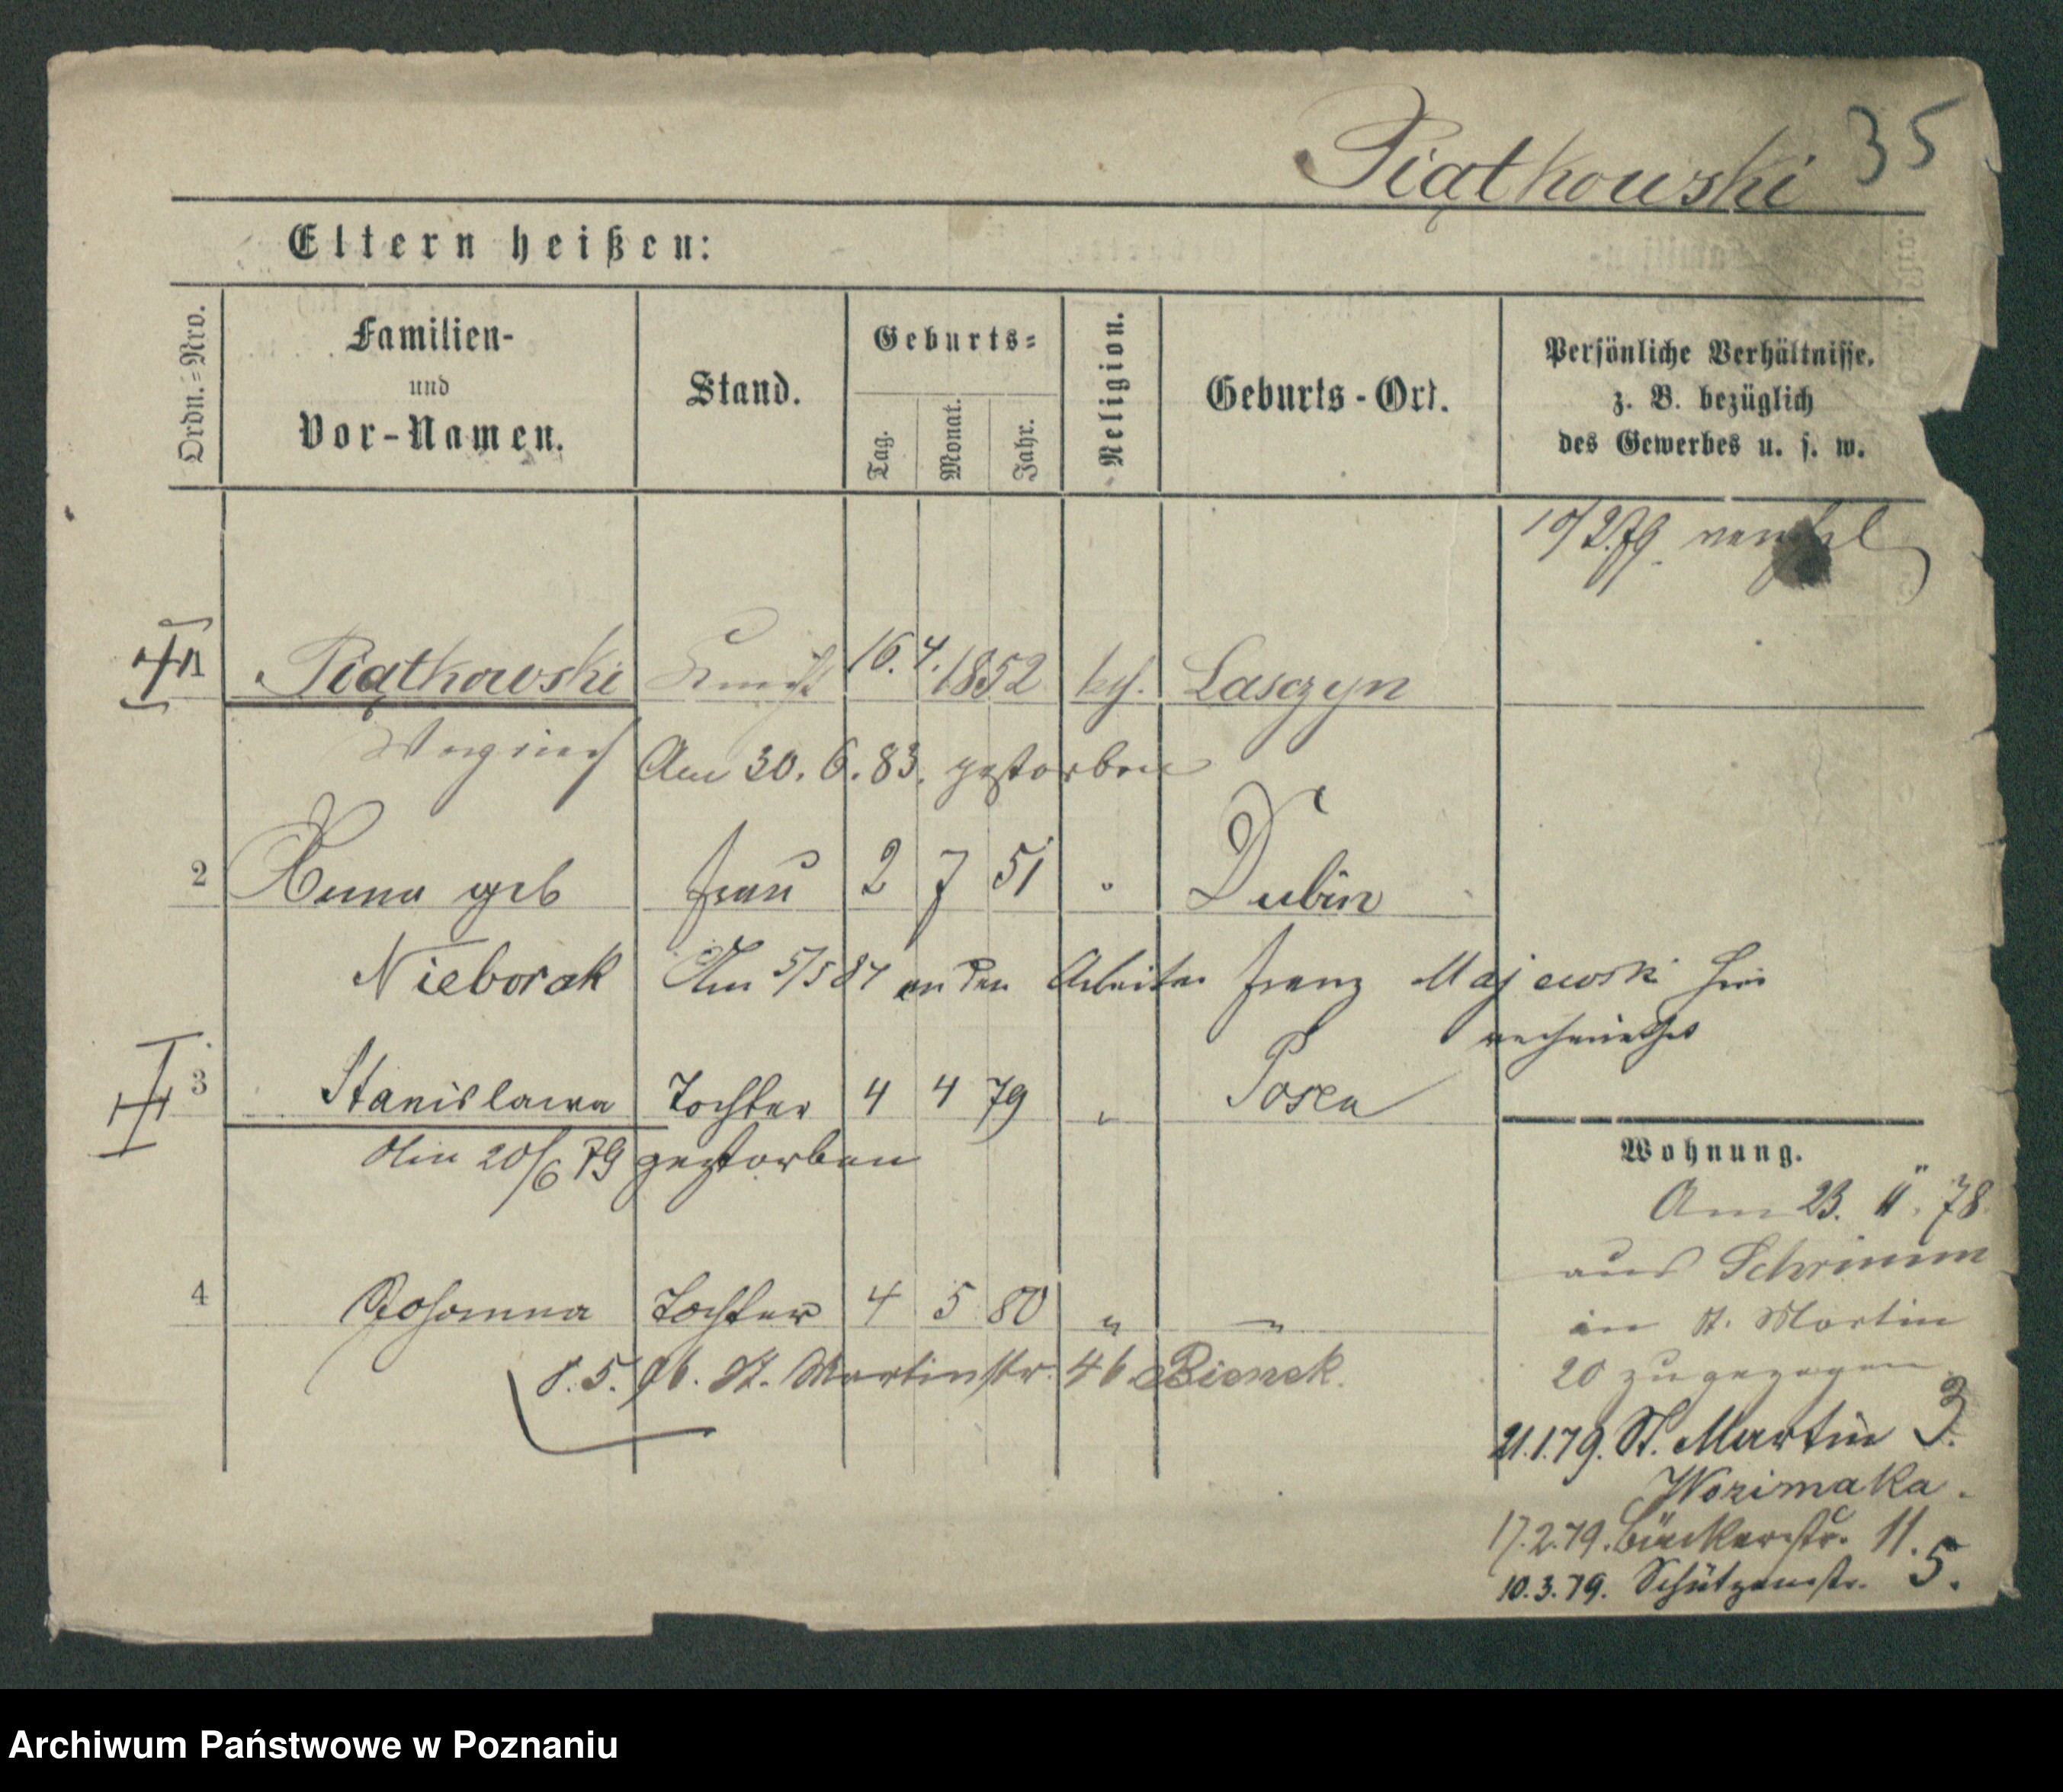 35
Piątkowski
Eltern heißen:
Ordn.=Nro.
Familien-
und
Vor-Namen.
Stand.
Geburts=
Tag.
Monat.
Jahr.
Religion.
Geburts-Ort.
Persönliche Verhältnisse.
z. B. bezüglich
des Gewerbes u. s. w.
10/2.79.
1 Piątkowski Knecht 16. 4. 1852 kth. Lasczyn
Am 30. 6. 83. gestorben
2 Anna geb Frau 2 7 51 " Dubin
Nieborak Am 5/5 87 an den Arbeiter Franz Majewski hier
verheirathet
3 Stanislawa Tochter 4 4 79 " Posen
Am 20/6 79 gestorben
4 Johanna Tochter 4 5 80 " "
8. 5. 96. St. Martinstr. 46 Bienek.
Wohnung.
Am 23. 11. 78.
aus Schrimm
in St. Martin
20 zugezogen
21.1.79. St. Martin 3.
Wozimaka.
17.2.79. Bäckerstr. 11.
10.3.79. Schützenstr. 5.
Archiwum Państwowe w Poznaniu